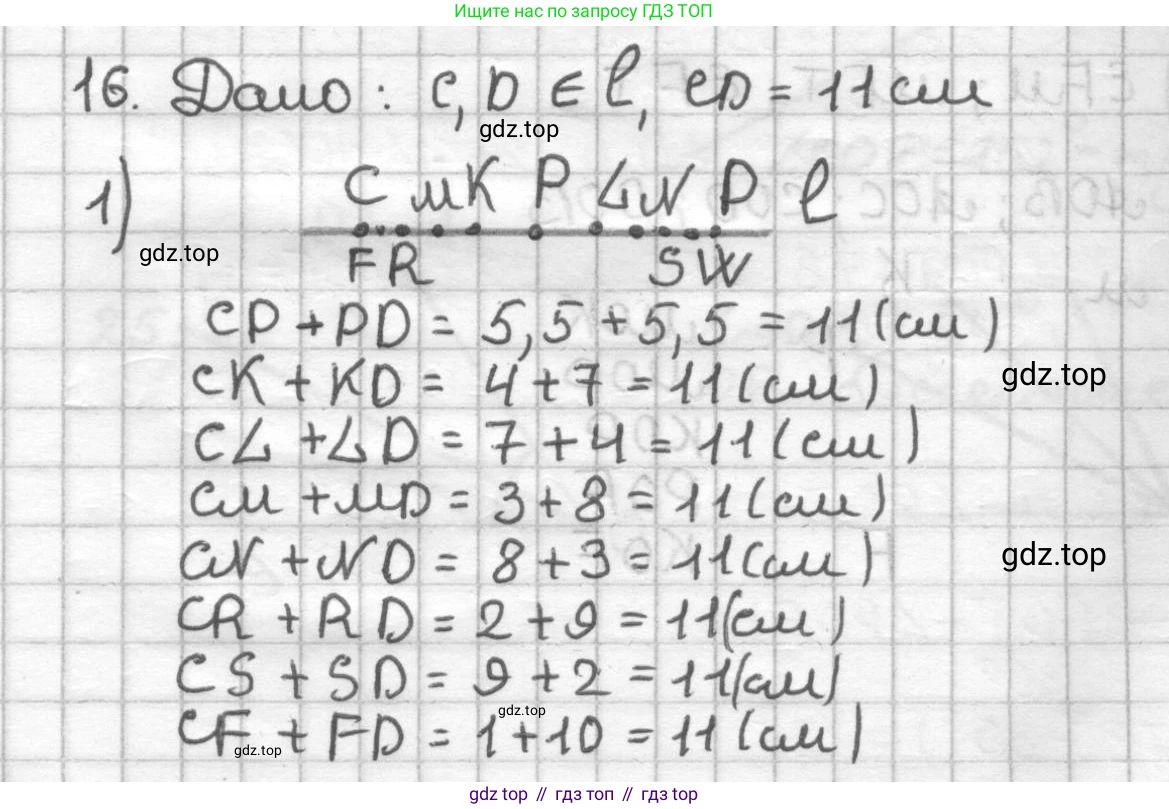 Ищите нас по запросу ГДЗ ТОП
16. Дано: C, D ∈ l, CD = 11 см
gdz.top
1) C M K P L N D l
gdz.top
F R S W
CP + PD = 5,5 + 5,5 = 11 (см)
CK + KD = 4 + 7 = 11 (см)
gdz.top
CL + LD = 7 + 4 = 11 (см)
CM + MD = 3 + 8 = 11 (см)
CN + ND = 8 + 3 = 11 (см)
gdz.top
CR + RD = 2 + 9 = 11 (см)
CS + SD = 9 + 2 = 11 (см)
gdz.top
CF + FD = 1 + 10 = 11 (см)
gdz.top
gdz top // гдз топ // гдз top